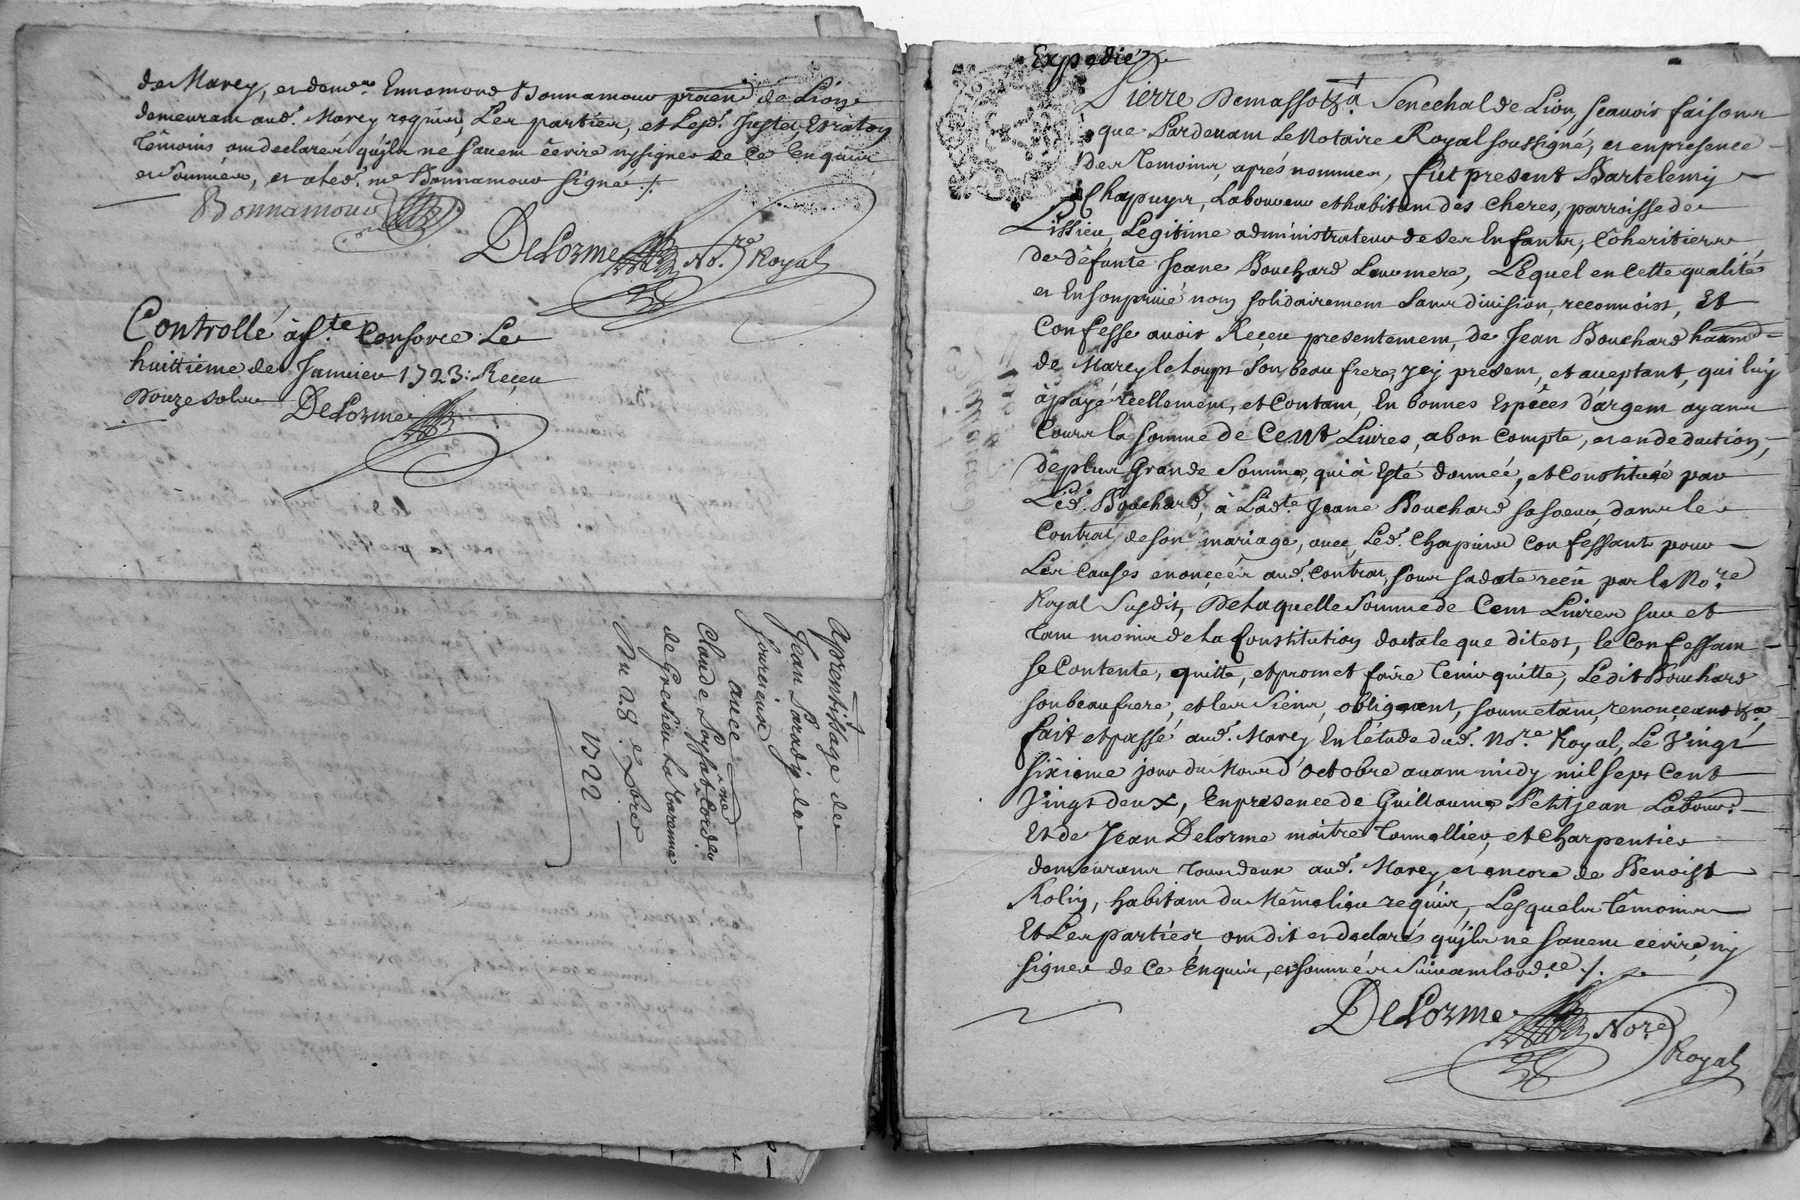 de Marcy, et de me. Ennemond Bonnamour praticien de Lion
demeurant aud. Marcy requis, Les parties, et Led. Juste
témoins ont declares qu'jls ne savent écrire ny signer de ce Enquis
et Sommés, et a led. me Bonnamour signé ./.
Bonnamour
DeLorme No.re Royal
Controllé à S.te Consorce Le
huittieme de Janvier 1723: Reçeu
Douze sols
DeLorme
aprentissage de
Jean Paradis de
Courzieux
avec
Claude
de Grésieu La Varenne
Du 28.e Xbre
1722
Expedié
Pierre Demasso &.a Senechal de Lion, sçavoir faisons
que Pardevant Le Notaire Royal soussigné, et en presence
des temoins, aprés nommés, fut present Bartelemy
Chapuys, Laboureur et habitant des Cheres, parroisse de
Lissieu, Legitime administrateur de ses Enfants, Coheritiers
de défunte Jeane Bouchard Leur mere, Lequel en Cette qualité
et En son privé nom solidairement sans division, reconnoist, Et
Confesse avoir Reçeu presentement, de Jean Bouchard habitant
de Marcy le Loup son beau frere, jcy present, et acceptant, qui luy
à payé réellement, et Contant, En bonnes Espéces d'argent ayant
Cours la somme de Cent Livres, a bon Compte, et en deduction,
de plus Grande Somme, qui à Esté donneé, et Constituée par
Led. Bouchard, à Lad.te Jeane Bouchard sa soeur, dans le
Contrat de son mariage, avec Led. Chapuis Confessant pour
Les Causes enonçées aud. Contrat, sous sa date recû par le No.re
Royal Susdit, De laquelle Somme de Cent Livres sur et
tant moins de la Constitution dotale que dit est, le Confessant
se Contente, quitte, et promet faire tenir quitte, Ledit Bouchard
son beau frere, et les Siens, obligeant, soumetant, renonçeant &.a
fait et passé aud. Marcy En l'etude dud. No.re Royal, Le Vingt
sixieme jour du Mois d'octobre avant midy mil sept Cent
Vingt deux, En presence de Guillaume Petitjean Labour.
Et de Jean Delorme maitre tonnellier, et Charpentier
demeurants tous deux aud. Marcy et encore de Benoist
Rolin, habitant du Même lieu requis, Lesquels témoins
Et Les parties ont dit et declarés qu'jls ne savent écrire, ny
signer de Ce Enquis, et sommés Suivant l'ord.ce ./.
DeLorme No.re
Royal